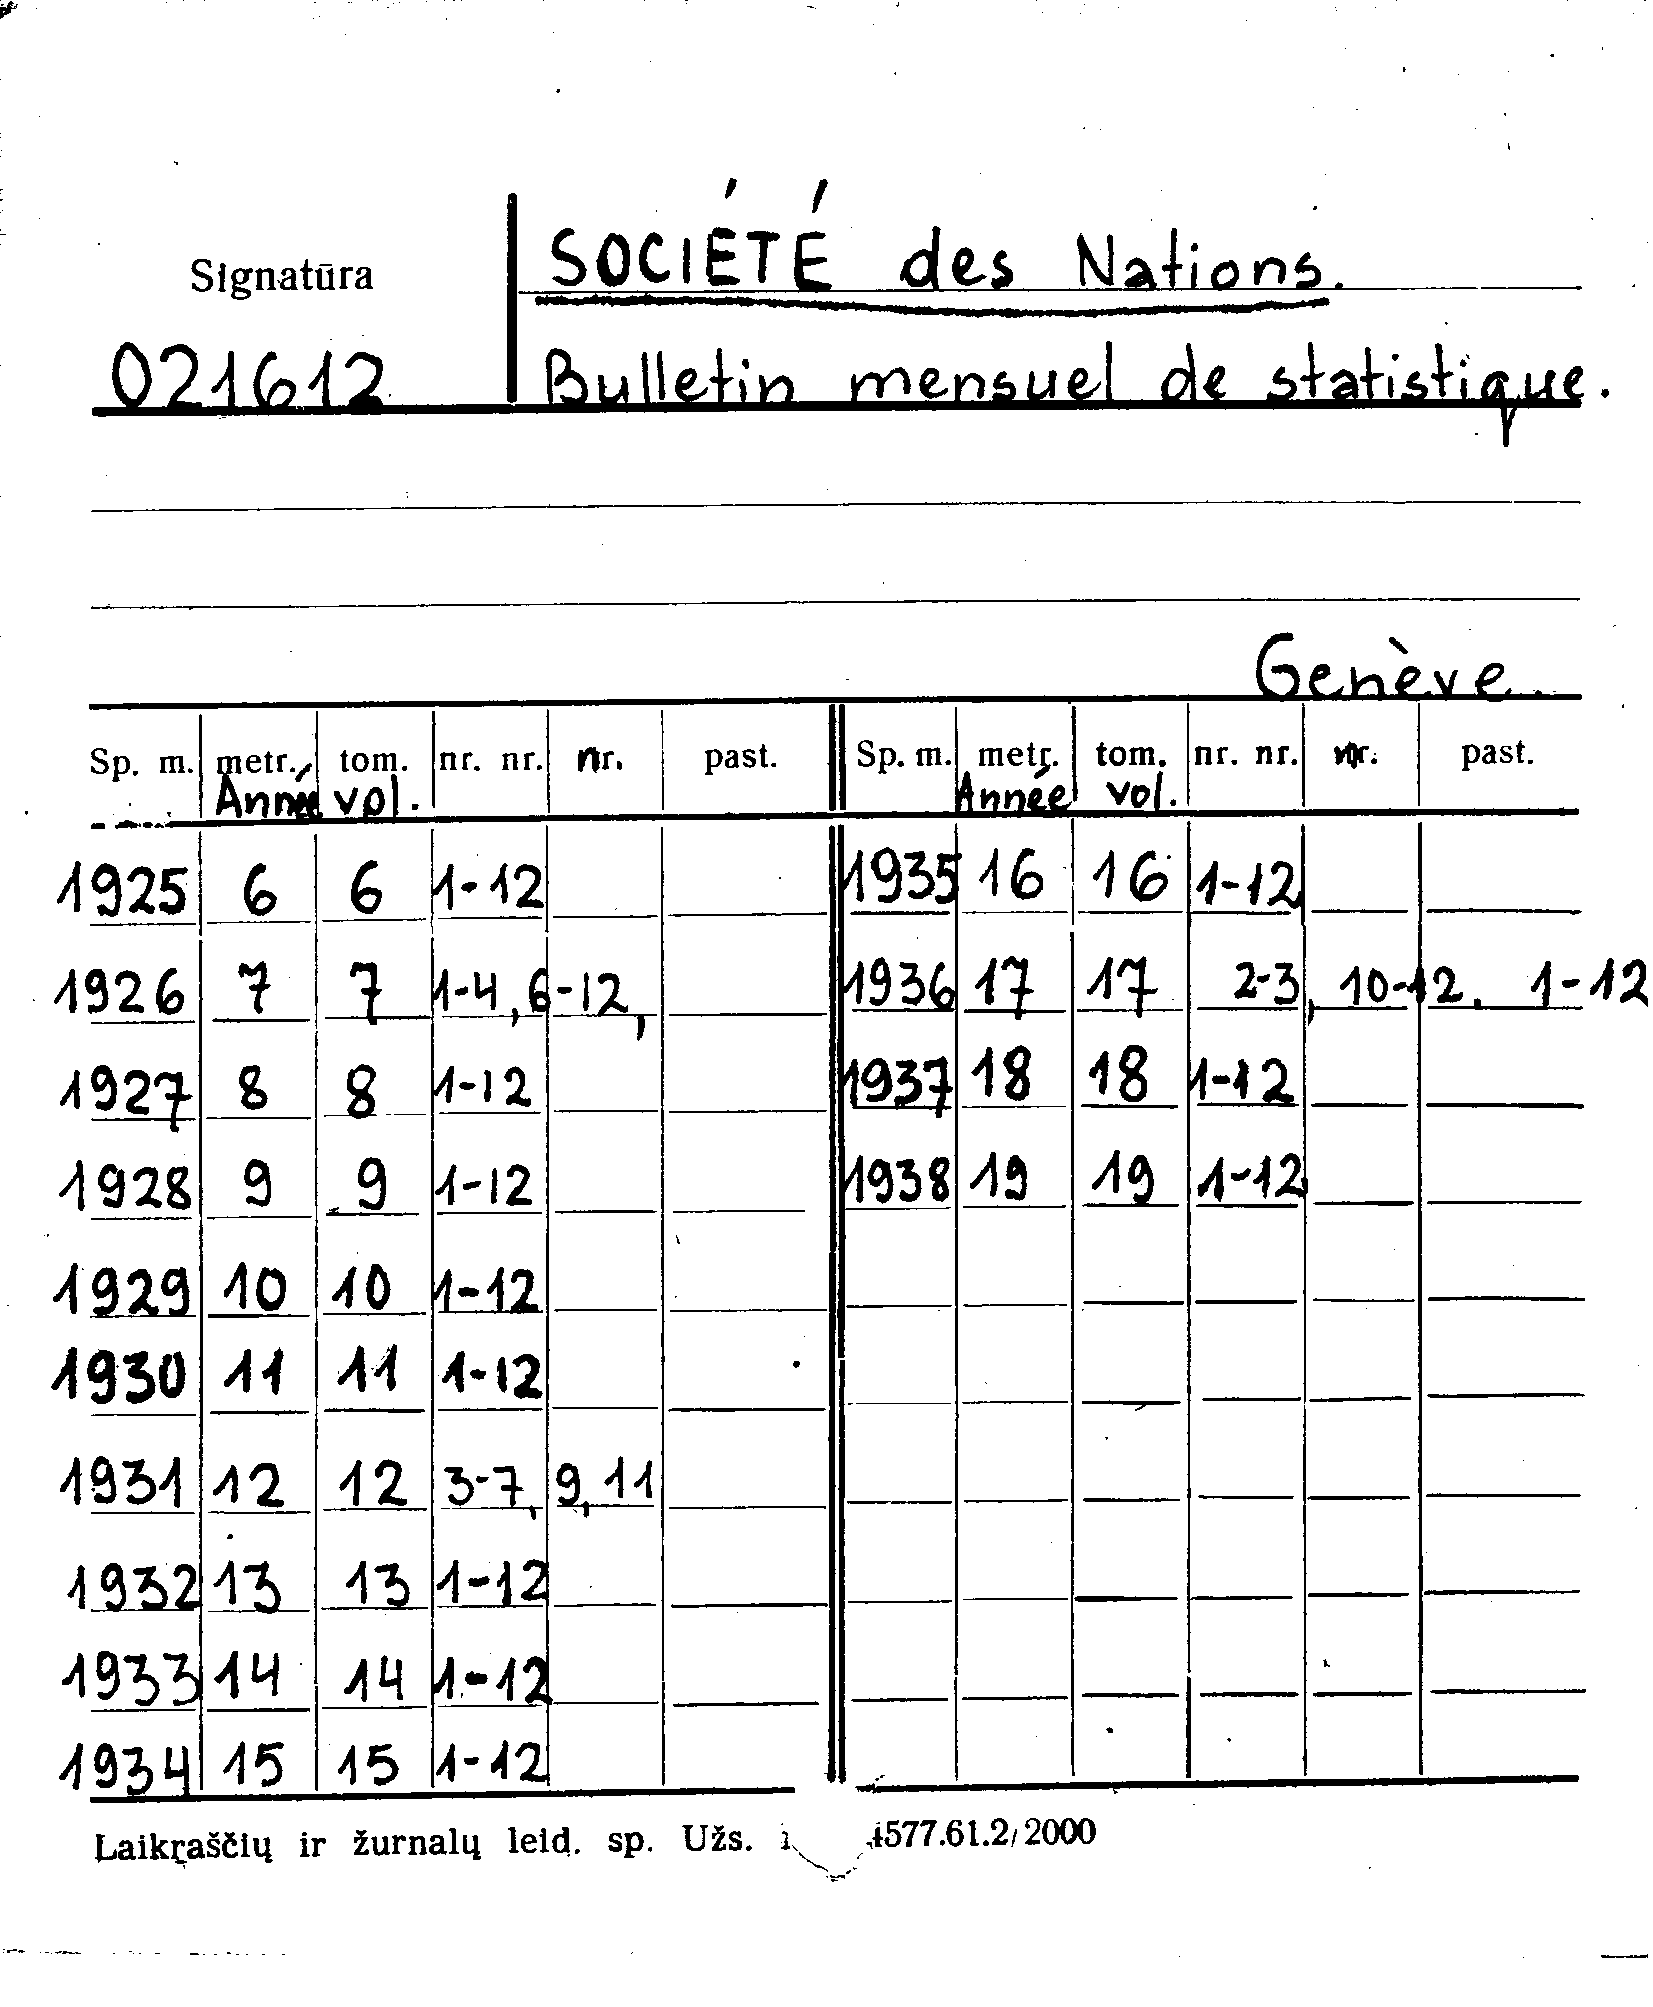 Signatūra
SOCIÉTÉ des Nations.
021612
Bulletin mensuel de statistique.
Genève.
Sp. m. metr. tom. nr. nr. nr. past. Sp. m. metr. tom. nr. nr. nr. past.
Année vol. Année vol.
1925 6 6 1-12 1935 16 16 1-12
1926 7 7 1-4, 6-12, 1936 17 17 2-3, 10-12. 1-12
1927 8 8 1-12 1937 18 18 1-12
1928 9 9 1-12 1938 19 19 1-12
1929 10 10 1-12
1930 11 11 1-12
1931 12 12 3-7, 9, 11
1932 13 13 1-12
1933 14 14 1-12
1934 15 15 1-12
Laikraščių ir žurnalų leid. sp. Užs. 4577.61.2/2000